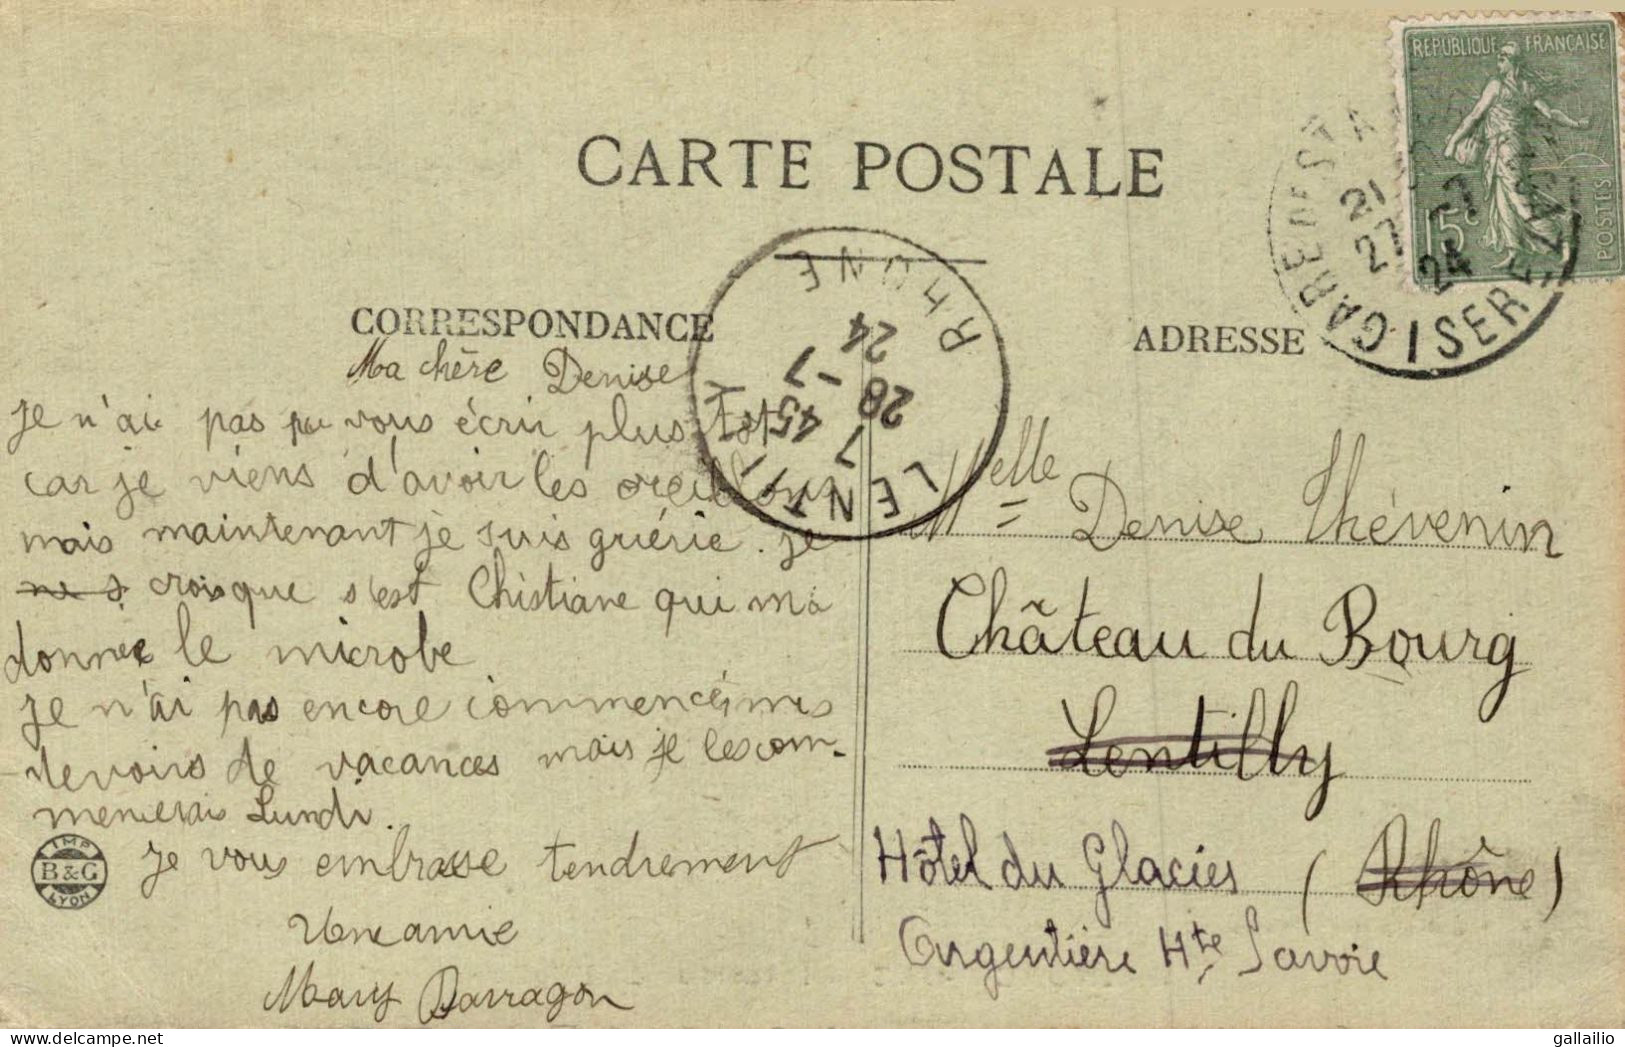 CARTE POSTALE
CORRESPONDANCE
Ma chère Denise
je n'ai pas pu vous écrir plus tot
car je viens d'avoir les oreillons
mais maintenant je suis guérie. je
crois que s'est Chistiane qui ma
donner le microbe
je n'ai pas encore commencé mes
devoirs de vacances mais je les com-
mencerais Lundi.
je vous embrasse tendrement
Une amie
Mary Barragon
IMP
B&G
LYON
RHONE
24
28 -7
7 45
LENTILLY
ADRESSE
REPUBLIQUE FRANÇAISE
15c
POSTES
GARE
21
27 -7
24
ISERE
Melle Denise Thévenin
Château du Bourg
Lentilly
(Rhône)
Hôtel du Glacier
Argentière Hte Savoie
gallailio